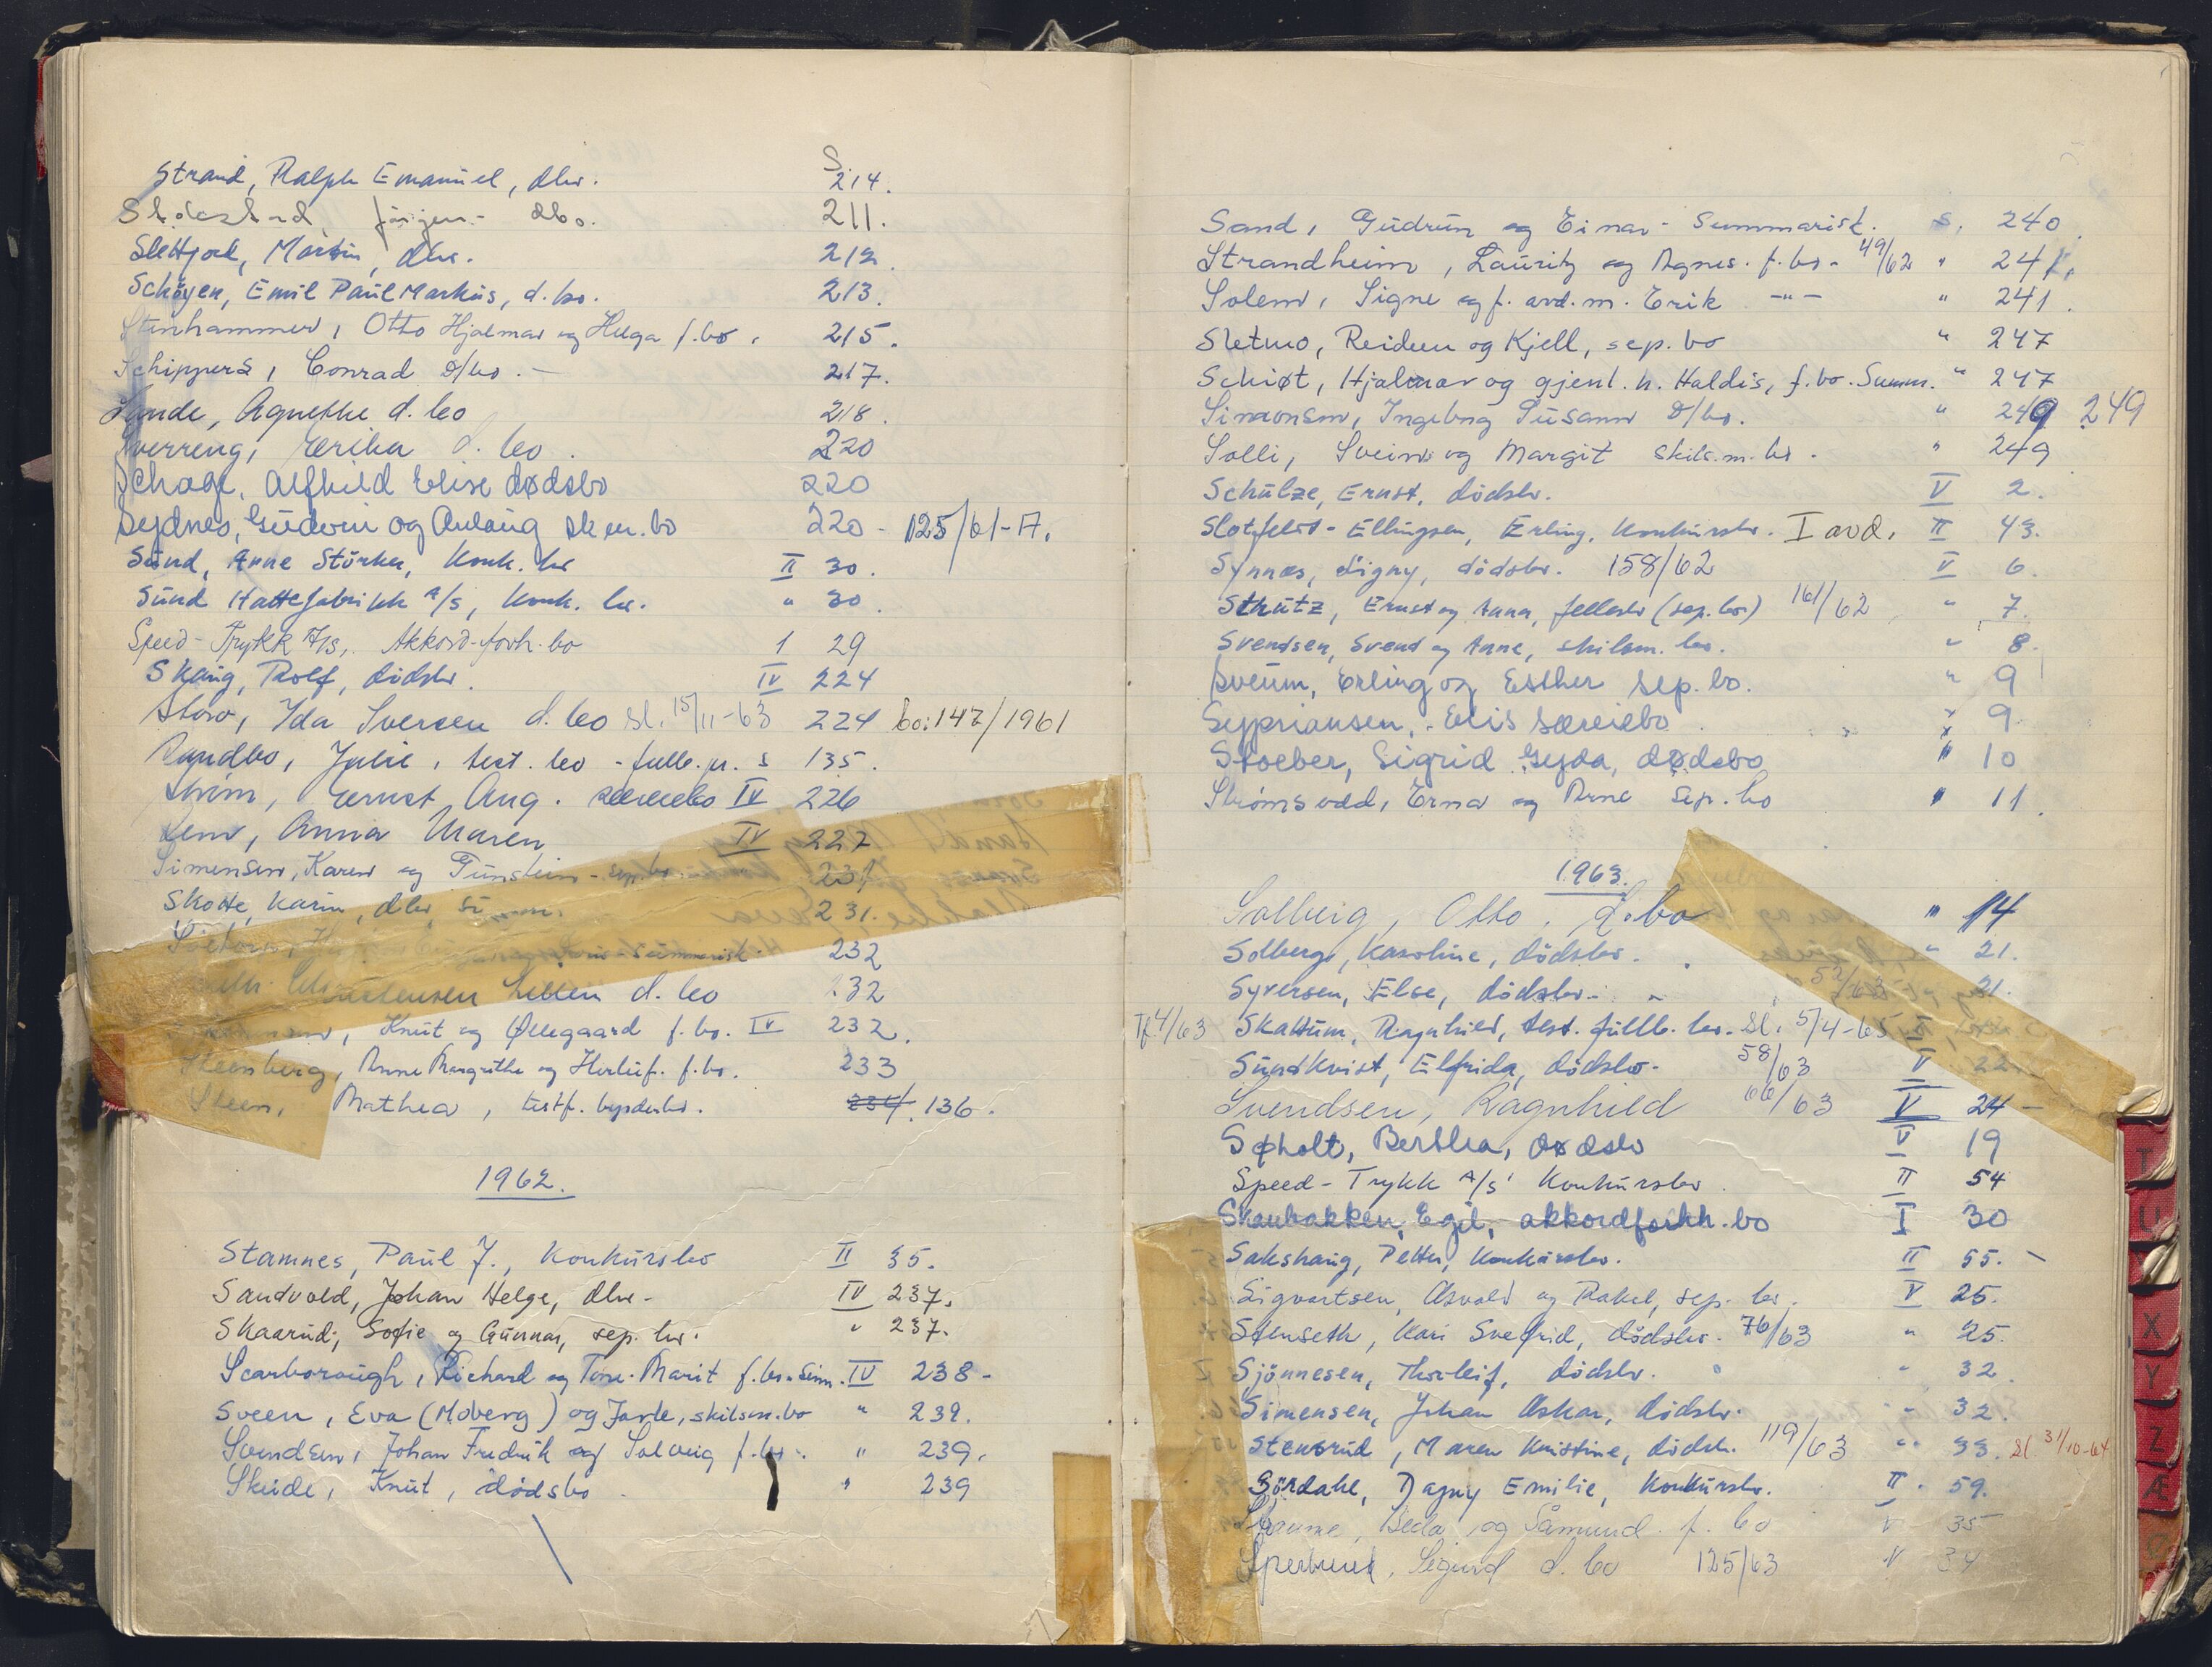 S.
Strand, Ralph Emanuel, dbo. 214.
dbo. 211.
Slettjord, Martin, dbo. 212.
Schøyen, Emil Paul Markus, d.bo. 213.
Stenhammer, Otto Hjalmar og Helga f.bo. 215.
Schippers, Conrad d/bo. — 217.
Agnethe d. bo 218.
Sverreng, Erika d. bo. 220
Schage, Alfhild Elise dødsbo 220
Sydnes, Gudrun og Anlaug 220 - 125/61-A.
Sund, Anne Størker, Konk. bo II 30.
Sund Hattefabrikk A/S, Konk. bo. " 30.
Speed-Trykk A/S, Akkord-forh. bo 1 29
Skaug, Rolf, dødsbo. IV 224
Ida Iversen d. bo sl. 15/11-63 224 bo: 147/1961
Julie, test. bo - fullb. s 135.
Strøm, Ernst Aug. særeiebo IV 226
Anna Maren IV 227
Simensen, Karen og Gunstein - sep.bo. 231
Skotte, Karin, dbo 231.
232
Lillien d. bo 232
Knut og Øllegaard f.bo. IV 232.
Steenberg, Anne Margrethe og Herluf. f.bo. 233
Steen, Mathea, testf. 234. 136.
1962.
Stamnes, Paul J., Konkursbo II 35.
Sandvold, Johan Helge, dbo - IV 237.
Skaarud, Sofie og Gunnar, sep. bo. " 237.
Scarborough, Richard og Tone-Marit f.bo. Sum. IV 238 -
Sveen, Eva (Moberg) og Jarle, skilsm.bo " 239.
Svendsen, Johan Fredrik og Solveig f.bo. " 239.
Skeide, Knut, dødsbo " 239
Sand, Gudrun og Einar - Summarisk. s. 240.
Strandheim, Lauritz og Agnes. f.bo. 49/62 " 241.
Solem, Signe og f. avd. m. Erik —"— " 241.
Sletmo, Reidun og Kjell, sep. bo " 247
Schiøt, Hjalmar og gjenl. h. Haldis, f.bo. Summ. " 247
Simonsen, Ingeborg Susann d/bo. " 249 249
Solli, Svein og Margit skils.m. bo. " 249
Schulze, Ernst, dødsbo. V 2.
Slotfeldt-Ellingsen, Erling, Konkursbo. I avd. II 43.
Synnøs, Signy, dødsbo. 158/62 V 6.
Schutz, Ernst og Anna, fellesbo (sep. bo) 161/62 " 7.
Svendsen, Svend og Anne, skilsm. bo. " 8.
Sveum, Erling og Esther sep. bo. " 9
Sypriansen, Elis særeiebo " 9
Stoeber, Sigrid Gyda, dødsbo " 10
Strømsodd, Erna og Arne sep. bo " 11.
1963.
Solberg, Otto, d.bo " 14
Solberg, Karoline, dødsbo. " 21.
Syversen, Else, dødsbo. 52/63 21.
Tf. 4/63 Skattum, Ragnhild, test. fullb. bo. Sl. 5/4-65
Sundkvist, Elfrida, dødsbo. 58/63 V 22.
Svendsen, Ragnhild 66/63 V 24 -
Søholt, Berthea, dødsbo V 19
Speed-Trykk A/S' Konkursbo. II 54
Skaubakken, Egil, akkordforhh. bo I 30
Sakshaug, Petter, Konkursbo. II 55. -
Sigvartsen, Asvald og Rakel, sep. bo. V 25.
Stenseth, Kari Svefrid, dødsbo. 76/63 " 25.
Sjønnesen, Thorleif, dødsbo. " 32.
Simensen, Johan Oskar, dødsbo. " 32.
Stensrud, Maren Kristine, dødsb. 119/63 " 33. Sl. 31/10-64
Sørdahl, Dagny Emilie, Konkursbo. II. 59.
Beda og Sámund. f. bo V 35
Sigurd d. bo 125/63 V 34